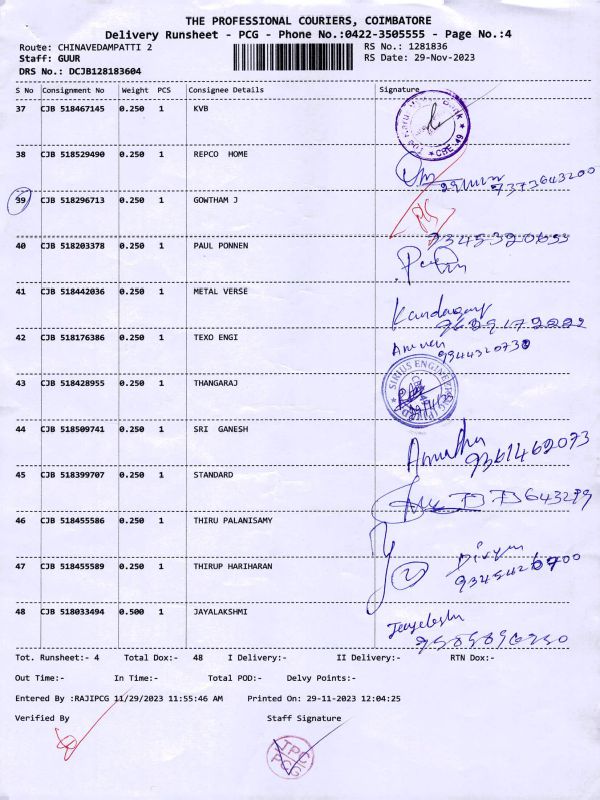 THE PROFESSIONAL COURIERS, COIMBATORE
Delivery Runsheet - PCG - Phone No.:0422-3505555 - Page No.:4
Route: CHINAVEDAMPATTI 2 RS No.: 1281836
Staff: GUUR RS Date: 29-Nov-2023
DRS No.: DCJB128183604
S No Consignment No Weight PCS Consignee Details Signature
37 CJB 518467145 0.250 1 KVB
CBE-49
38 CJB 518529490 0.250 1 REPCO HOME
7373643200
39 CJB 518296713 0.250 1 GOWTHAM J
9345320653
40 CJB 518203378 0.250 1 PAUL PONNEN
41 CJB 518442036 0.250 1 METAL VERSE
Kandasamy
42 CJB 518176386 0.250 1 TEXO ENGI
9944320730
43 CJB 518428955 0.250 1 THANGARAJ
SIRIUS ENGINEER
44 CJB 518509741 0.250 1 SRI GANESH
9361462073
45 CJB 518399707 0.250 1 STANDARD
46 CJB 518455586 0.250 1 THIRU PALANISAMY
47 CJB 518455589 0.250 1 THIRUP HARIHARAN
2 Divya
48 CJB 518033494 0.500 1 JAYALAKSHMI
Tot. Runsheet:- 4 Total Dox:- 48 I Delivery:- II Delivery:- RTN Dox:-
Out Time:- In Time:- Total POD:- Delvy Points:-
Entered By :RAJIPCG 11/29/2023 11:55:46 AM Printed On: 29-11-2023 12:04:25
Verified By Staff Signature